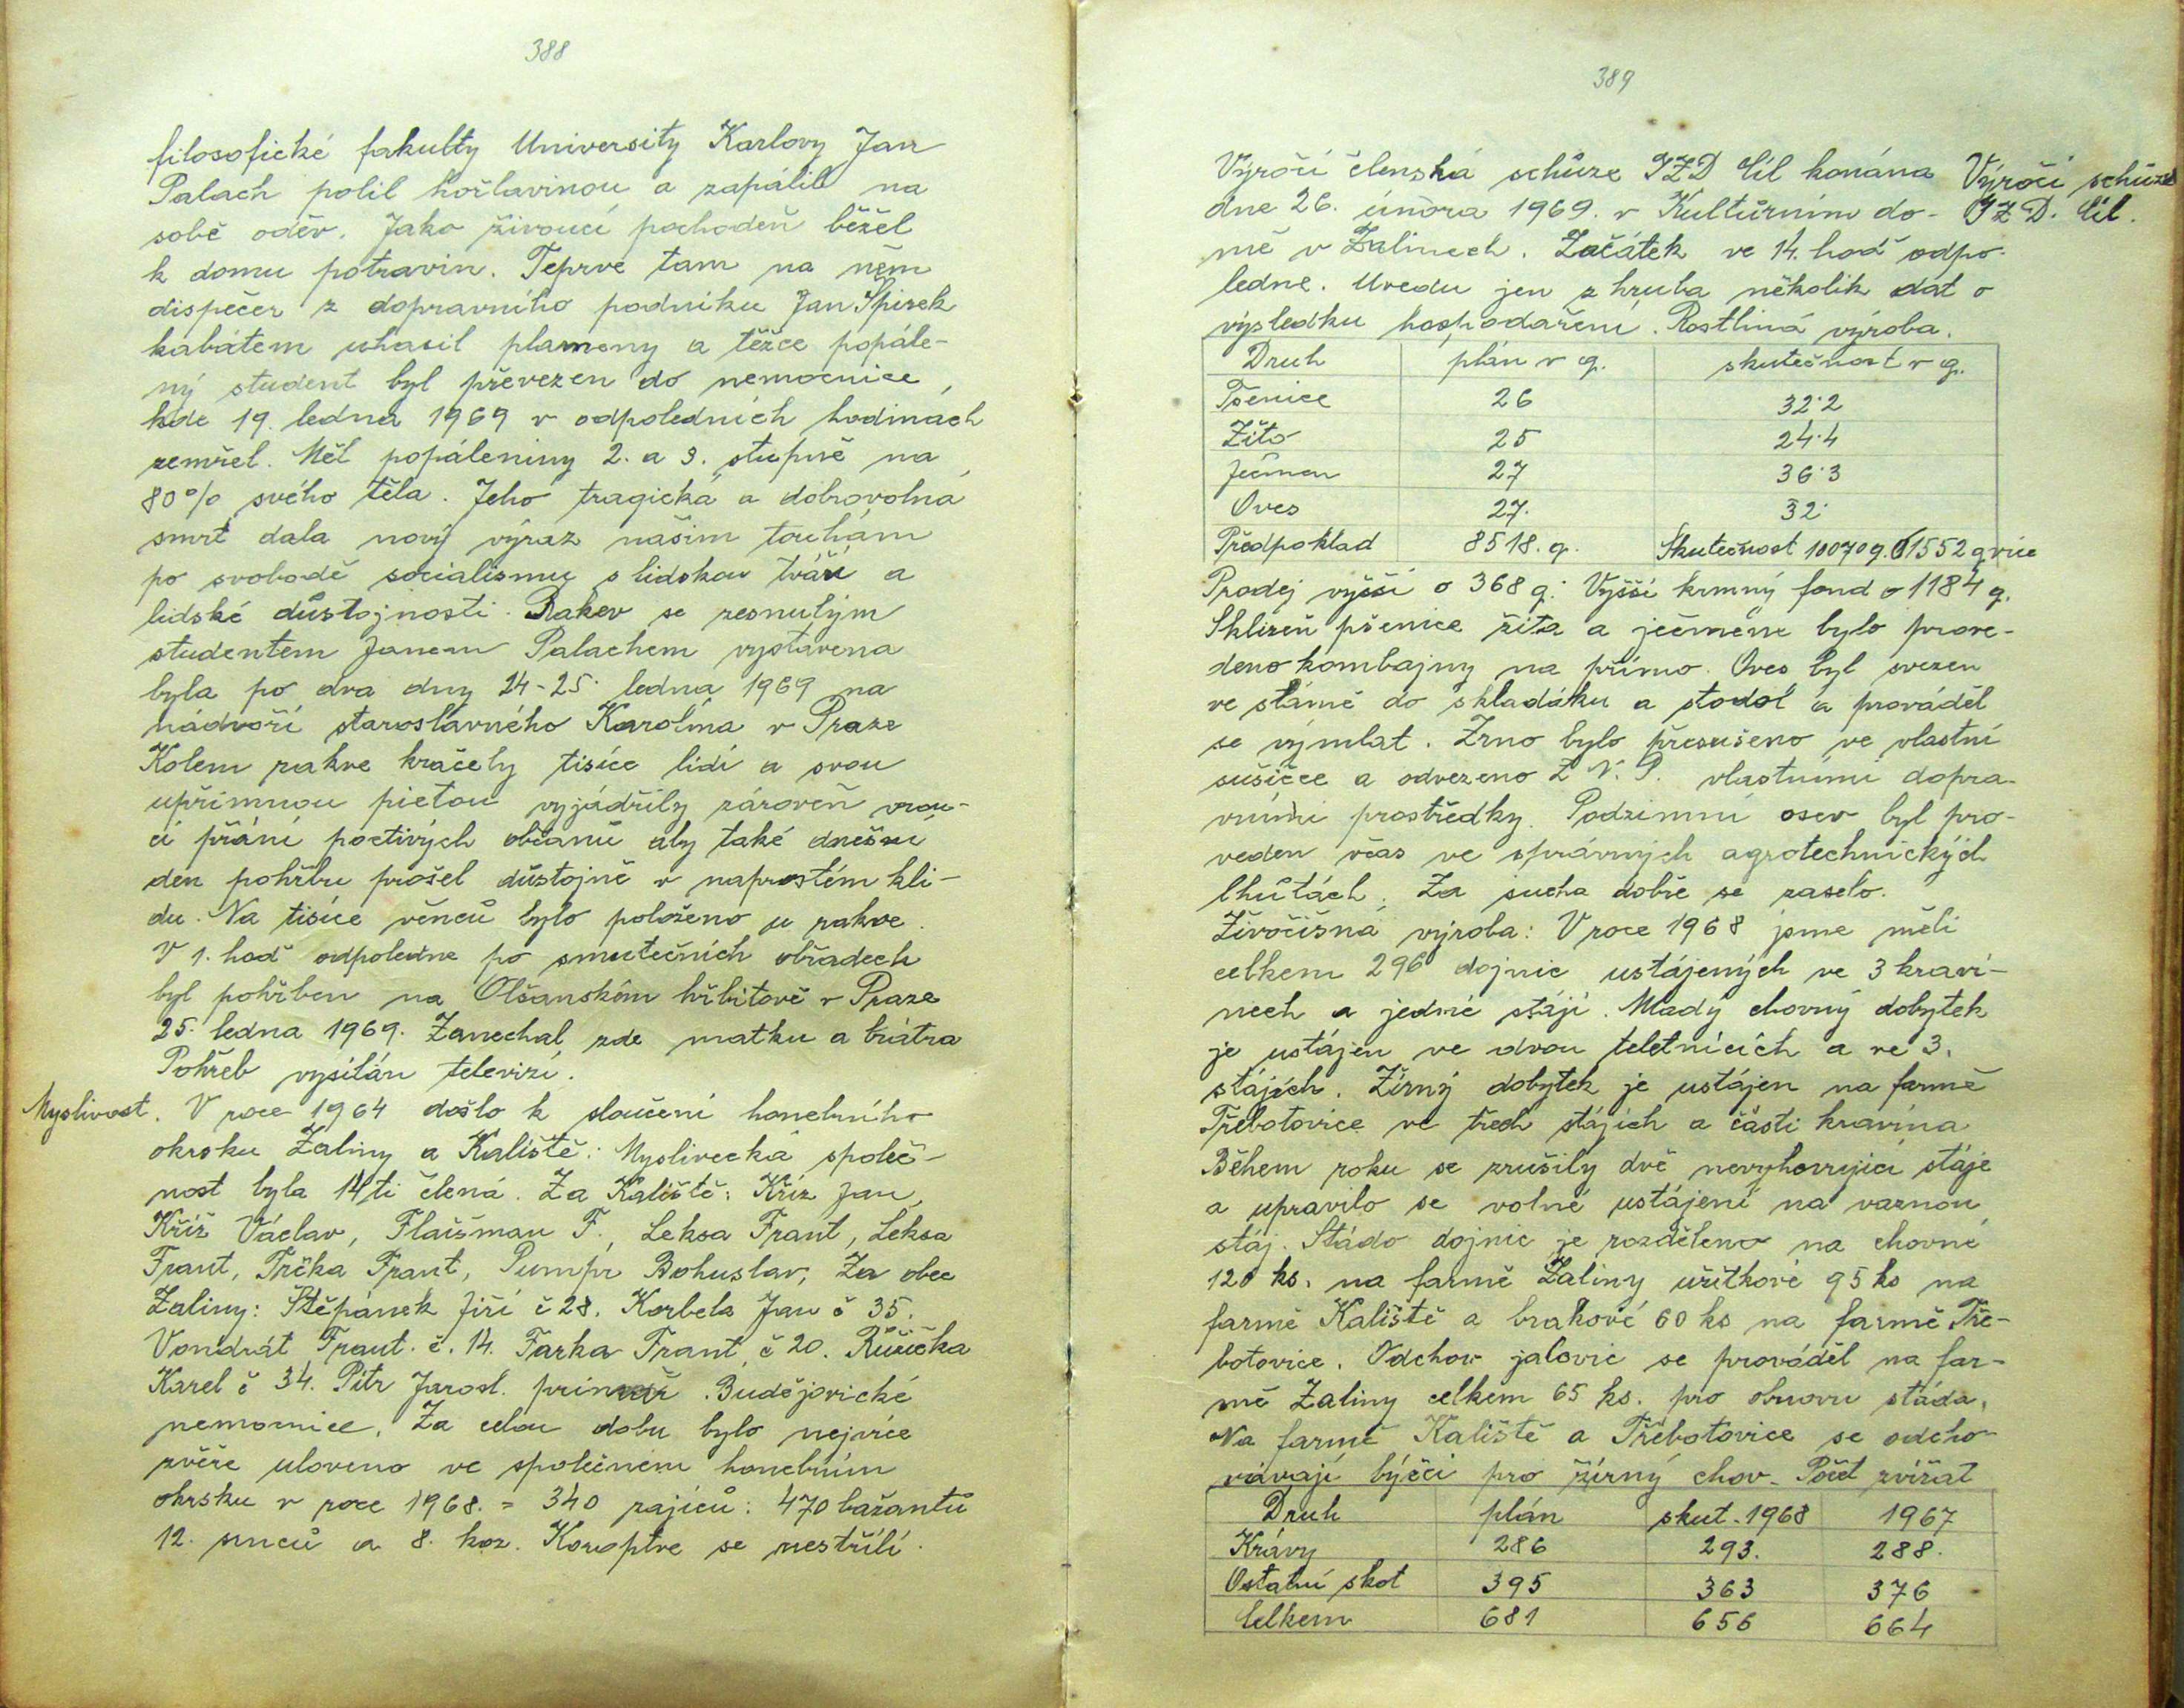 388
filosofické fakulty University Karlovy Jan
Palach polil hořlavinou a zapálil na
sobě oděv. Jako živoucí pochodeň běžel
k domu potravin. Teprve tam na něm
dispečer z dopravního podniku Jan Špirek
kabátem uhasil plameny a těžce popále-
ný student byl převezen do nemocnice,
kde 19. ledna 1969 v odpoledních hodinách
zemřel. Měl popáleniny 2. a 3. stupně na
80% svého těla. Jeho tragická a dobrovolná
smrt dala nový výraz našim touhám
po svobodě socialismu s lidskou tváří a
lidské důstojnosti. Rakev se zesnulým
studentem Janem Palachem vystavena
byla po dva dny 24-25. ledna 1969 na
nádvoří staroslavného Karolína v Praze
Kolem rakve kráčely tisíce lidí a svou
upřímnou pietou vyjádřily zároveň vrou-
cí přání poctivých občanů aby také dnešní
den pohřbu prošel důstojně v naprostém kli-
du. Na tisíce věnců bylo položeno u rakve.
V 1. hod odpoledne po smutečních obřadech
byl pohřben na Olšanském hřbitově v Praze
25. ledna 1969. Zanechal zde matku a bratra
Pohřeb vysílán televizí.
Myslivost. V roce 1964 došlo k sloučení honebního
okrsku Zaliny a Kaliště: Myslivecká společ-
nost byla 14ti člená. Za Kaliště: Kříž Jan,
Kříž Václav, Flaišman F., Leksa Frant, Leksa
Frant, Trčka Frant, Pumpr Bohuslav, Za obec
Zaliny: Štěpánek Jiří č 28. Korbela Jan č 35.
Vondrát Frant. č. 14. Farka Frant, č 20. Růžička
Karel č 34. Pitr Jarosl. primář Budějovické
nemocnice. Za celou dobu bylo nejvíce
zvěře uloveno ve společném honebním
okrsku v roce 1968. = 340 zajíců: 470 bažantů
12. srnců a 8. koz. Koroptve se nestřílí.
389
Výročí členská schůze JZD Cíl konána
Výročí schůze
JZD. Cíl.
dne 26. února 1969. v Kulturním do-
mě v Zalinech. Začátek ve 14. hod odpo-
ledne. Uvedu jen zhruba několik dat o
výsledku hospodaření. Rostliná výroba.
Druh plán v q. skutečnost v q.
Pšenice 26 32·2
Žito 25 24·4
Ječmen 27 36·3
Oves 27. 32·
Předpoklad 8518. q. Skutečnost 10070 q. o 1552 q více
Prodej vyšší o 368 q. Vyšší krmný fond o 1184 q.
Sklizeň pšenice žita a ječmene bylo prove-
deno kombajny na přímo. Oves byl svezen
ve slámě do skladáku a stodol a prováděl
se výmlat. Zrno bylo přesušeno ve vlastní
sušičce a odvezeno Z. N. P. vlastními dopra-
vními prostředky. Podzimní osev byl pro-
veden včas ve správných agrotechnických
lhůtách. Za sucha dobře se zaselo.
Živočišná výroba: V roce 1968 jsme měli
celkem 296 dojnic ustájených ve 3 kraví-
nech a jedné stáji. Mladý chovný dobytek
je ustájen ve dvou teletnících a ve 3.
stájích. Žírný dobytek je ustájen na farmě
Třebotovice ve třech stájích a části kravína
Během roku se zrušily dvě nevyhovující stáje
a upravilo se volné ustájení na vaznou
stáj. Stádo dojnic je rozděleno na chovné
120 ks. na farmě Zaliny užitkové 95 ks na
farmě Kaliště a brakové 60 ks na farmě Tře-
botovice. Odchov jalovic se prováděl na far-
mě Zaliny celkem 65 ks. pro obnovu stáda.
Na farmě Kaliště a Třebotovice se odcho-
vávají býčci pro žírný chov. Počet zvířat
Druh plán skut. 1968 1967
Krávy 286 293. 288.
Ostatní skot 395 363 376
Celkem 681 656 664